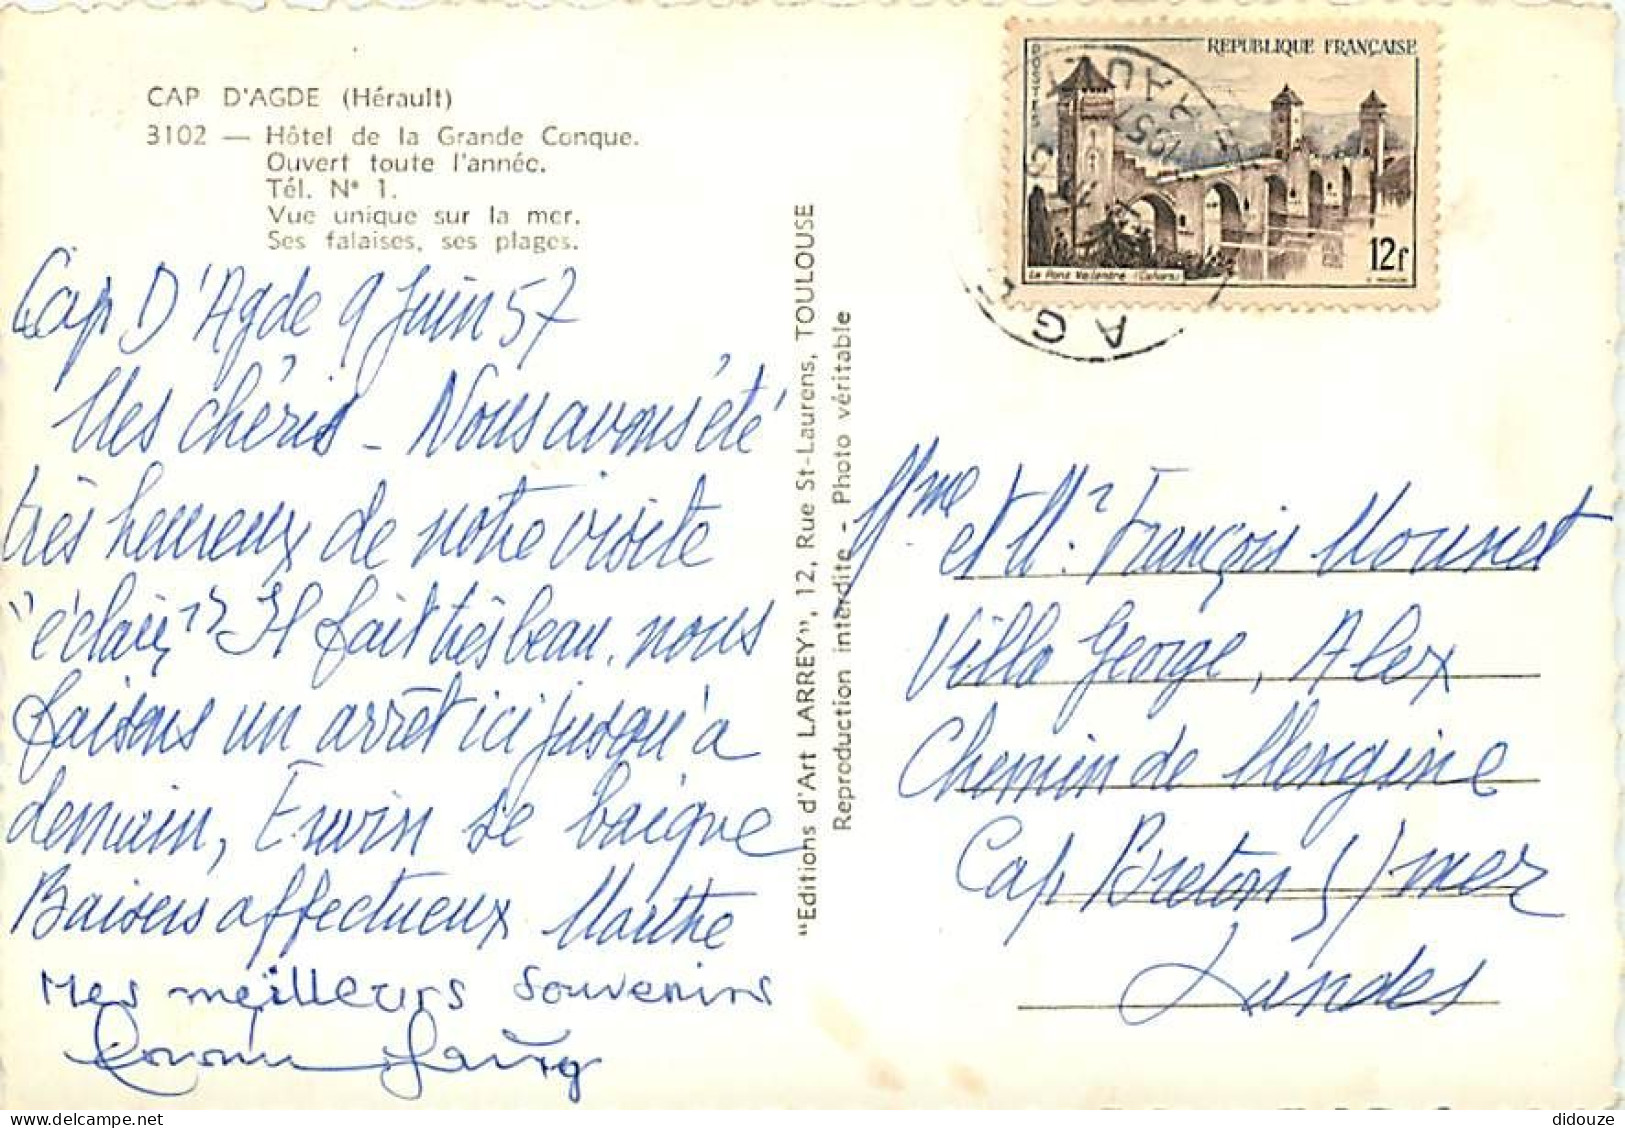 CAP D'AGDE (Hérault)
3102 — Hôtel de la Grande Conque.
Ouvert toute l'année.
Tél. N° 1.
Vue unique sur la mer.
Ses falaises, ses plages.
Cap D'Agde 9 Juin 57
Mes chéris - Nous avons été
très heureux de notre visite
"éclair" Il fait très beau, nous
faisons un arrêt ici jusqu'à
demain, Erwin se baigne
Baisers affectueux Marthe
Mes meilleurs souvenirs
"Editions d'Art LARREY", 12, Rue St-Laurens, TOULOUSE
Reproduction interdite - Photo véritable
REPUBLIQUE FRANÇAISE
POSTES
Le Pont Valentré (Cahors)
12f
1957
AG
Mme et Mr François Mounet
Villa George, Alex
Chemin de
Cap Breton s/ mer
Landes
didouze